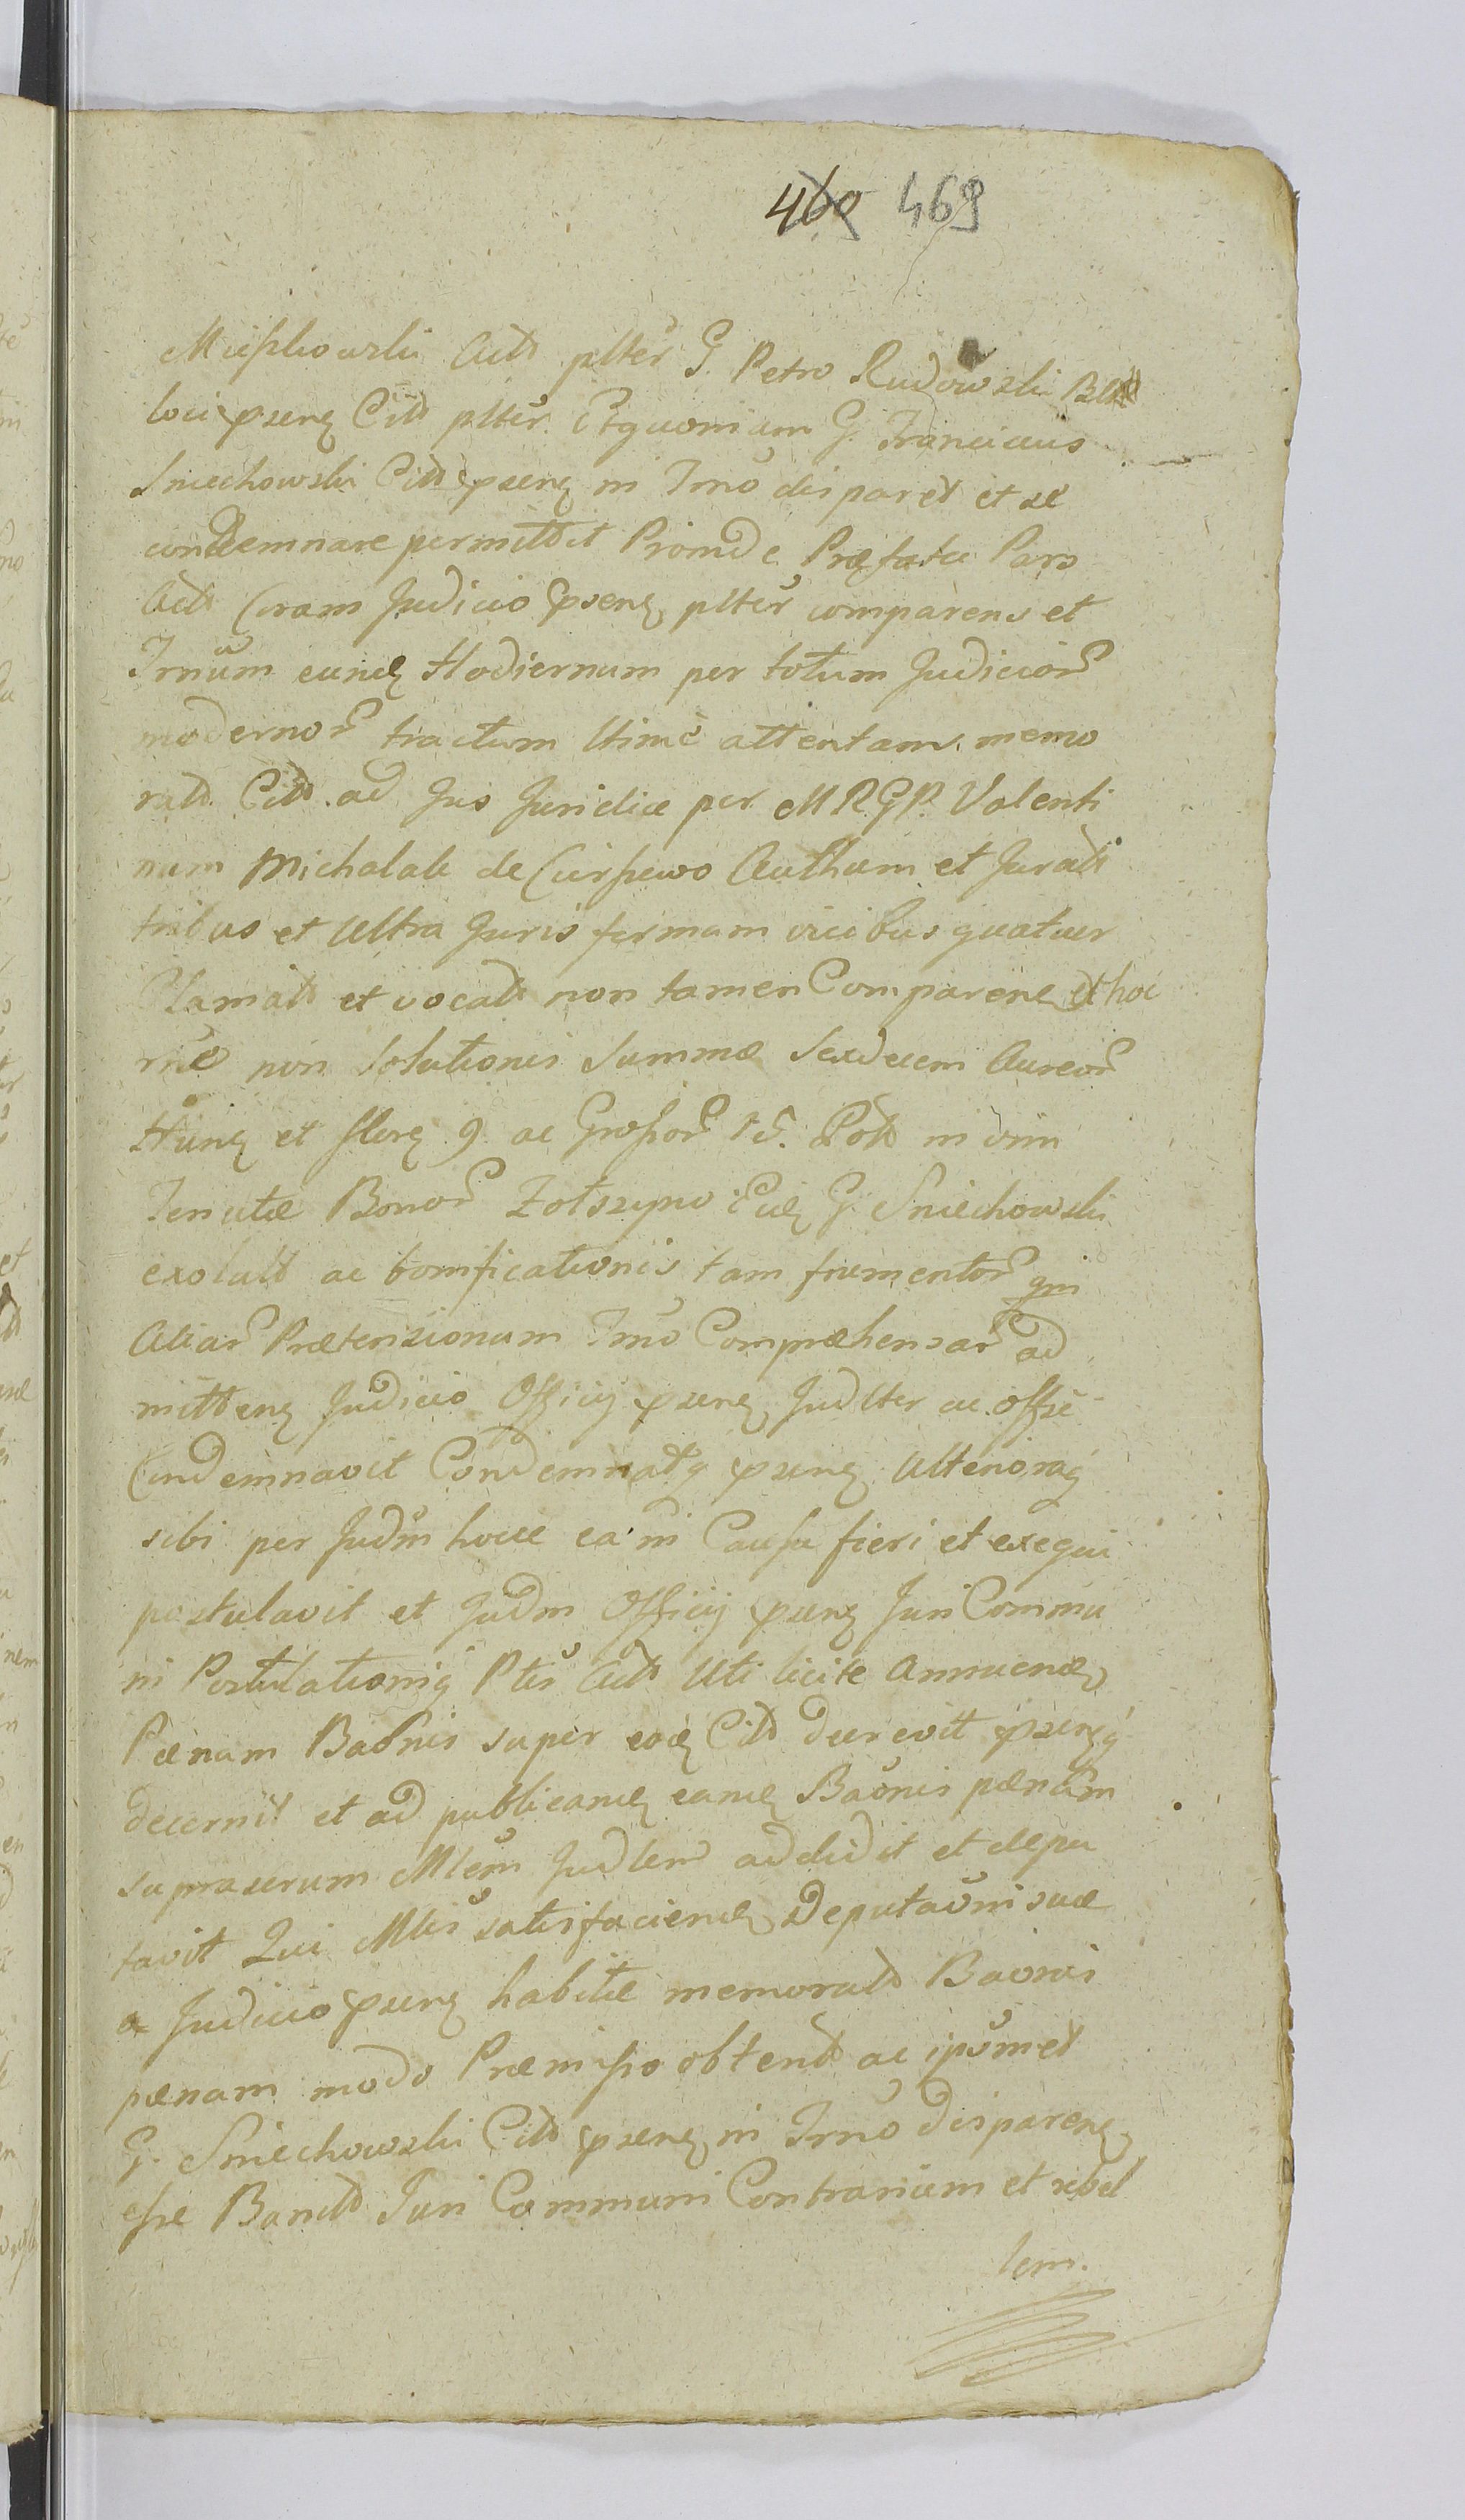 469 469
Miszkowski Actt plter G. Petro Rudowski
loci psenꝫ Citt plter. Et quoniam G. Franciscus
Sniechowski Citt psenꝫ in Trno disparet et se
condemnare permittit Proinde Præfata Pars
Actt Coram Judicio psenꝫ plter comparens et
Trnum eundꝫ Hodiernum per totum Judicior
modernor tractum ltime attentans memo
ratt Citt ad Jus Juridice per MRGP. Valenti
num Michalak de Cierszewo Authum et Juratt
tribus et ultra Juris formam vicibus quatuor
Clamatt et vocatt non tamen Comparenꝫ et hoc
rne non Solutionis Summæ Sexdecem Aureor
Hunꝫ et florꝫ 9 ac Grossor 15. Poltt in vim
Tenutæ Bonor Zotszyno Eidꝫ G. Sniechowski
exolutt ac bonificationis tam frumentor qm
Aliar Prætensionum Trno Compræhensar ad
mittenꝫ Judicio Officij psenꝫ Judlter ac offse
Condemnavit Condemnatq psenꝫ Ulterioraq
sibi per Judm hocce ea in Causa fieri et exequi
postulavit et Judm Officij psenꝫ Juri Commu
ni Postulationiq Ptis Actt Uti licite Annuendo
Pœnam Baonis super eodꝫ Citt decrevit psenꝫq
decernit et ad publicandꝫ eandꝫ Baonis pœnam
supraserum Mlem Judlem addidit et depu
tavit Qui Mlis satisfaciendꝫ Deputaoni suæ
a Judicio psenꝫ habitæ memoratt Baonis
pœnam modo Præmisso obtentt ac ipsumet
G. Sniechowski Citt psenꝫ in Trno disparenꝫ
esse Banitt Juri Communi Contrarium et rebel
lem.